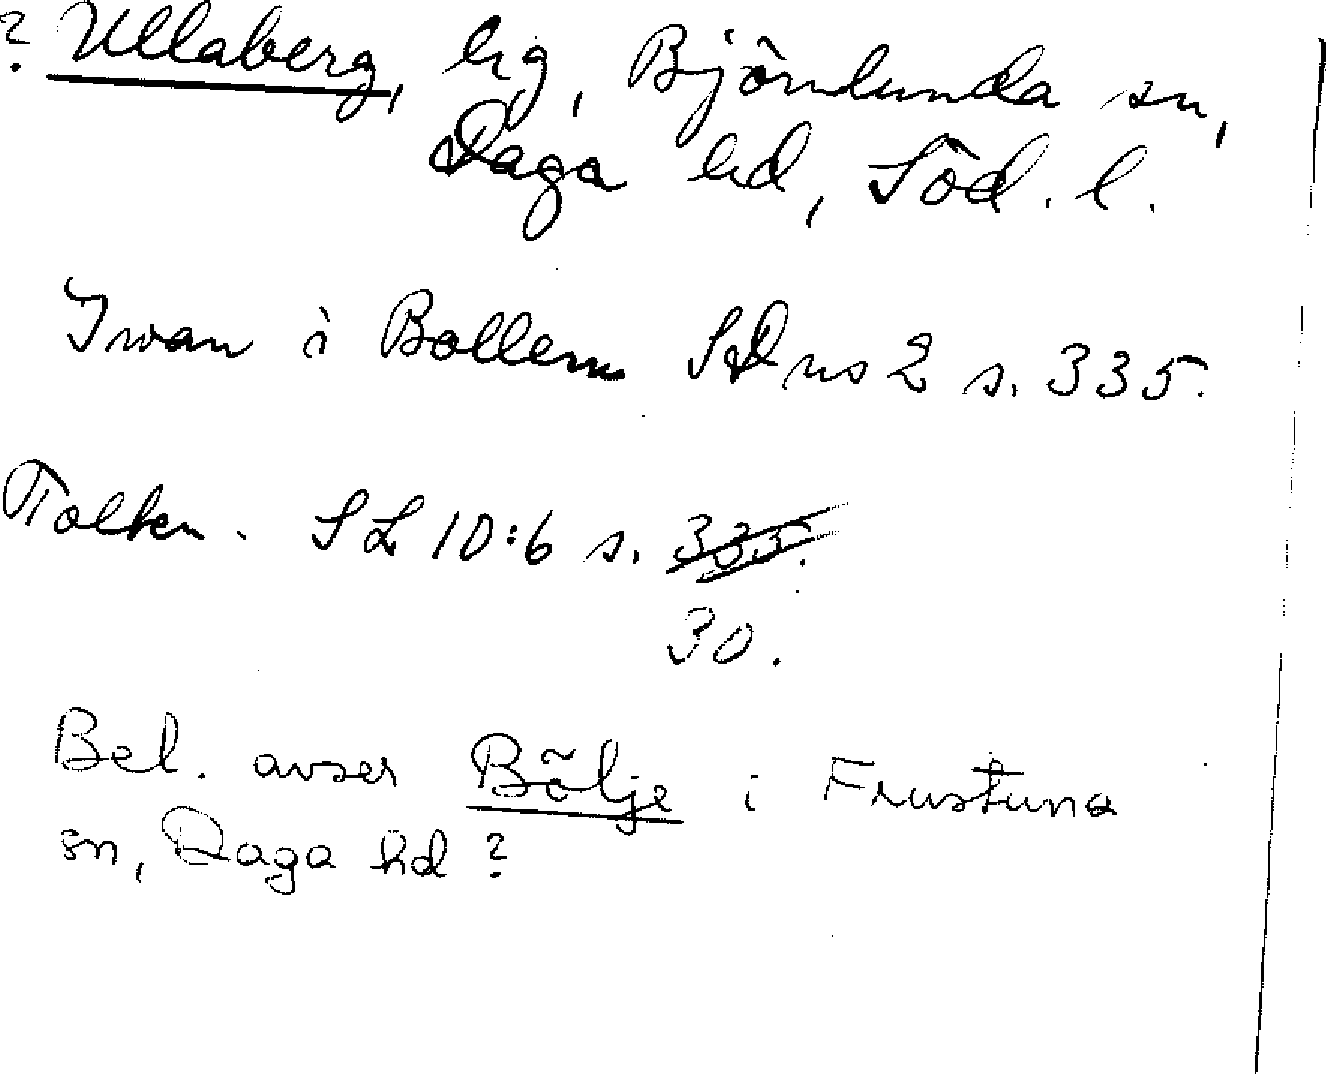 ? Ullaberg, hg, Björnlunda sn,
Daga hd, Söd. l.
Iwan i Bollem SD ns 2 s. 335.
Tolken. SL 10:6 s. 335.
30.
Bel. avser Bölje i Frustuna
sn, Daga hd ?